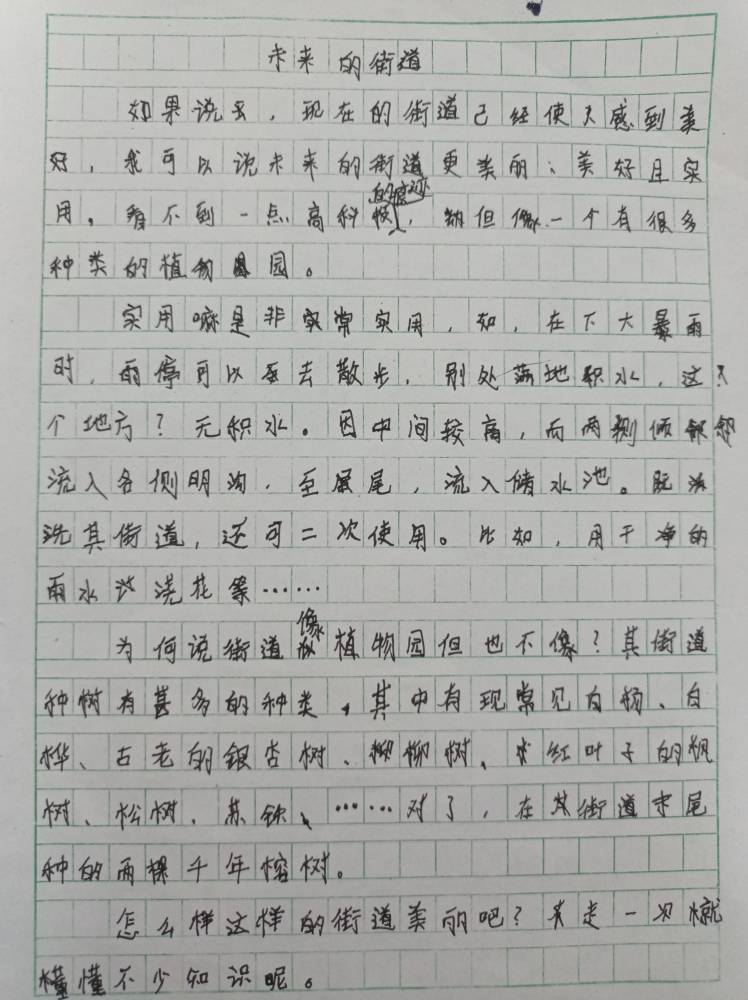 未来的街道
如果说去，现在的街道已经使人感到美
好，我可以说未来的街道更美丽、美好且实
用。看不到一点高科技的痕迹，但像一个有很多
种类的植物园。
实用嘛是非常实用，如，在下大暴雨
时，雨停可以至去散步，别处落地积水，这
个地方？无积水。因中间较高，而两侧倾斜
流入各侧明沟，至尾，流入储水池。既
洗其街道，还可二次使用。比如，用干净的
雨水浇花等……
为何说街道像植物园但也不像？其街道
种树有甚多的种类，其中有现常见白杨、白
桦、古老的银杏树、柳树、红叶子的枫
树、松树、苏铁、……对了，在其街道末尾
种的两棵千年榕树。
怎么样这样的街道美丽吧？走一次就
懂不少知识呢。